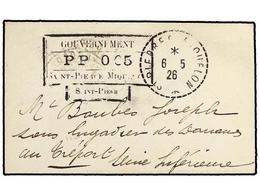 GOUVERNEMENT
P P 0 05
SAINT-PIERRE MIQUELON
SAINT-PIERRE
ST PIERRE ET MIQUELON
*
6 5
26
Mr Boubès Joseph
sous brigadier des Douanes
au Tréport Seine Inférieure